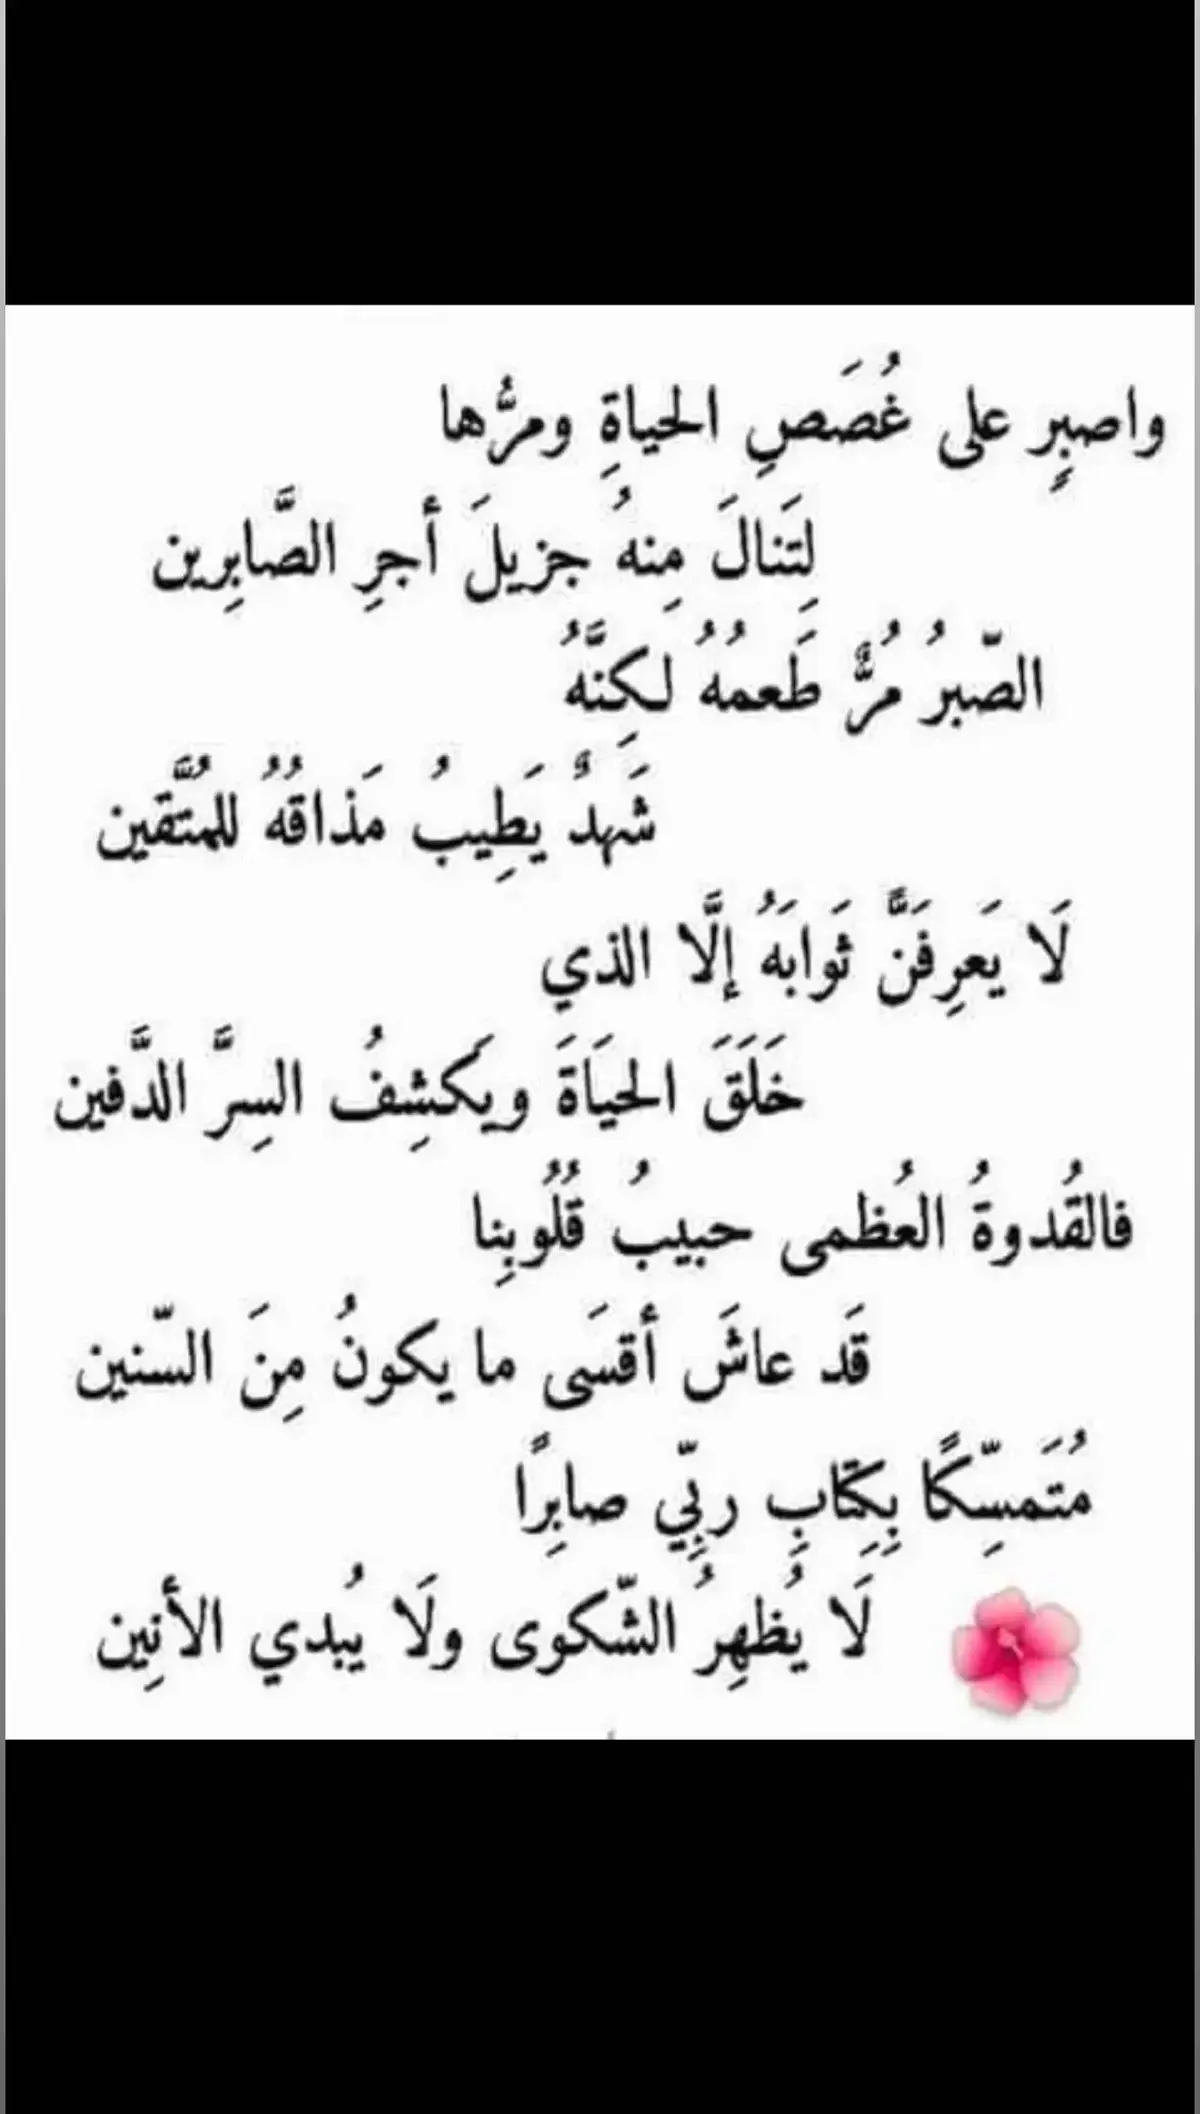 واصبٍر على غُصَصِ الحياةِ ومرُّها
لِتَنالَ مِنهُ جزيلَ أجرِ الصَّابِرين
الصّبرُ مُرٌّ طَعمُهُ لكِنَّهُ
شَهدٌ يَطِيبُ مَذاقُهُ للمُتَّقين
لَا يَعرِفَنَّ ثَوابَهُ إلَّا الذي
خَلَقَ الحيَاةَ ويَكشِفُ السِرَّ الدَّفين
فالقُدوةُ العُظمى حبيبُ قُلُوبِنا
قَد عاشَ أقسَى ما يكونُ مِنَ السّنين
مُتَمسِّكًا بِكِتابِ ربِّي صابِرًا
لَا يُظهِرُ الشّكوى ولَا يُبدي الأنِين